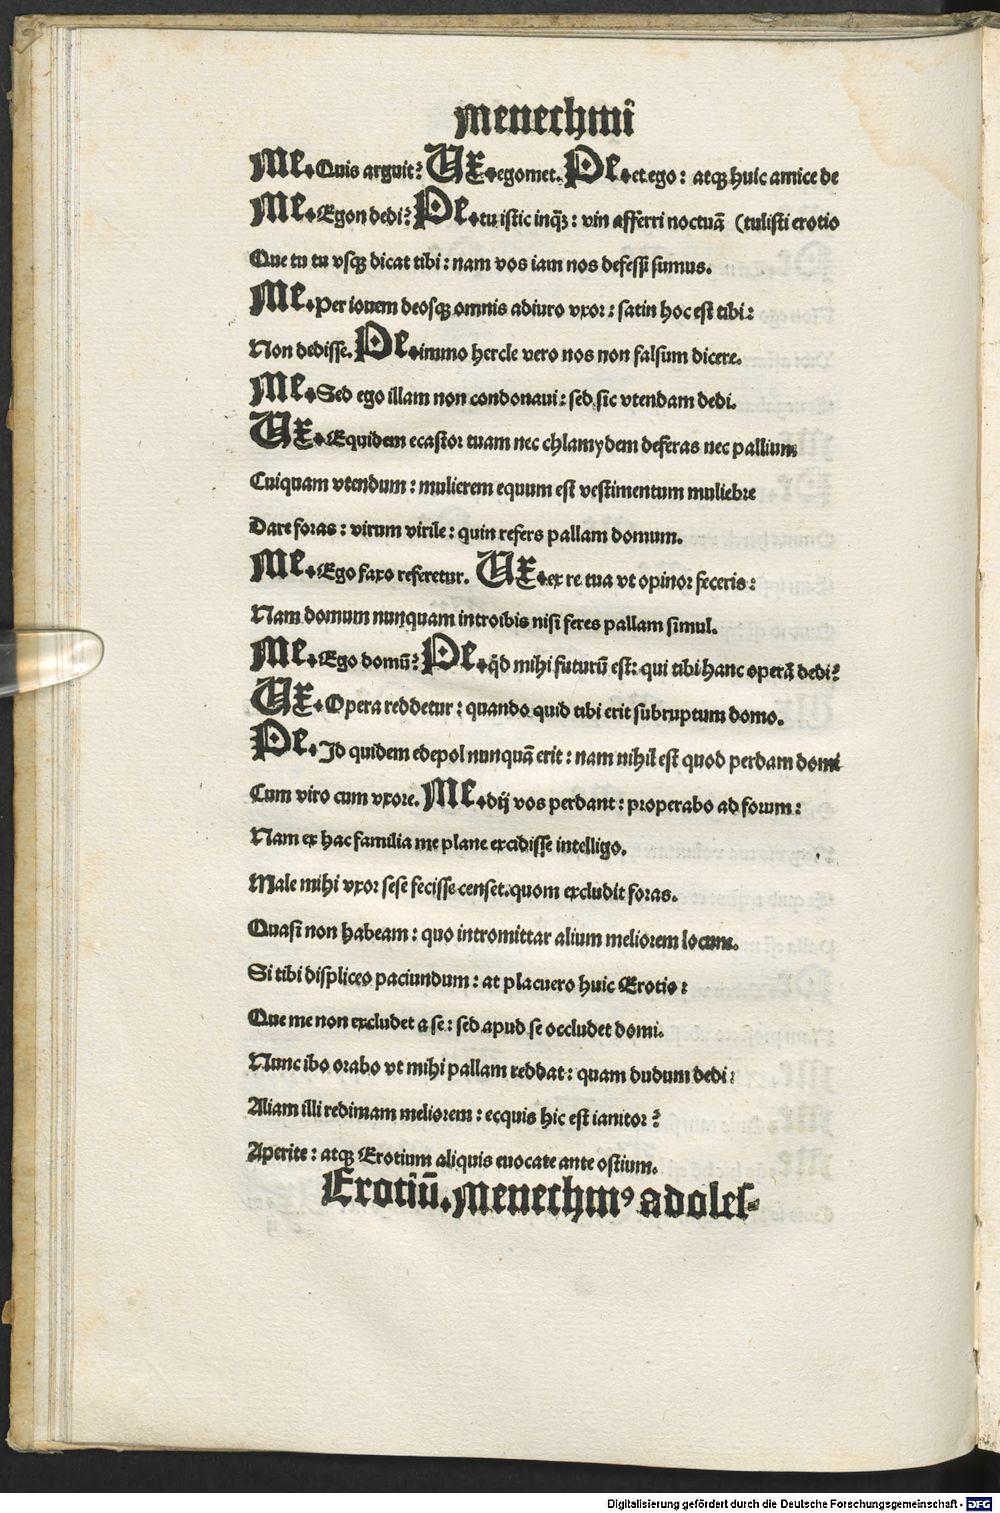 Menechmi
Me. Quis arguit? Ux. egomet. Pe. et ego: atqꝫ huic amice de
Me. Egon dedi? Pe. tu istic inq̃ꝫ: vin afferri noctuã (tulisti erotio
Que tu tu vsqꝫ dicat tibi: nam vos iam nos defessi sumus.
Me. Per iouem deosqꝫ omnis adiuro vxor: satin hoc est tibi:
Non dedisse. Pe. immo hercle vero nos non falsum dicere.
Me. Sed ego illam non condonaui: sed sic vtendam dedi.
Ux. Equidem ecastor tuam nec chlamydem deferas nec pallium
Cuiquam vtendum: mulierem equum est vestimentum muliebre
Dare foras: virum virile: quin refers pallam domum.
Me. Ego faxo referetur. Ux. ex re tua vt opinor feceris:
Nam domum nunquam introibis nisi feres pallam simul.
Me. Ego domũ? Pe. q̇d mihi futurũ est: qui tibi hanc operã dedi?
Ux. Opera reddetur: quando quid tibi erit subruptum domo.
Pe. Id quidem edepol nunquã erit: nam nihil est quod perdam domi
Cum viro cum vxore. Me. dij vos perdant: properabo ad forum:
Nam ex hac familia me plane excidisse intelligo.
Male mihi vxor sese fecisse censet. quom excludit foras.
Quasi non habeam: quo intromittar alium meliorem locum.
Si tibi displiceo paciundum: at placuero huic Erotio:
Que me non excludet a se: sed apud se occludet domi.
Nunc ibo orabo vt mihi pallam reddat: quam dudum dedi:
Aliam illi redimam meliorem: ecquis hic est ianitor?
Aperite: atqꝫ Erotium aliquis euocate ante ostium.
Erotiũ. Menechmꝰ adoles-
Digitalisierung gefördert durch die Deutsche Forschungsgemeinschaft - DFG